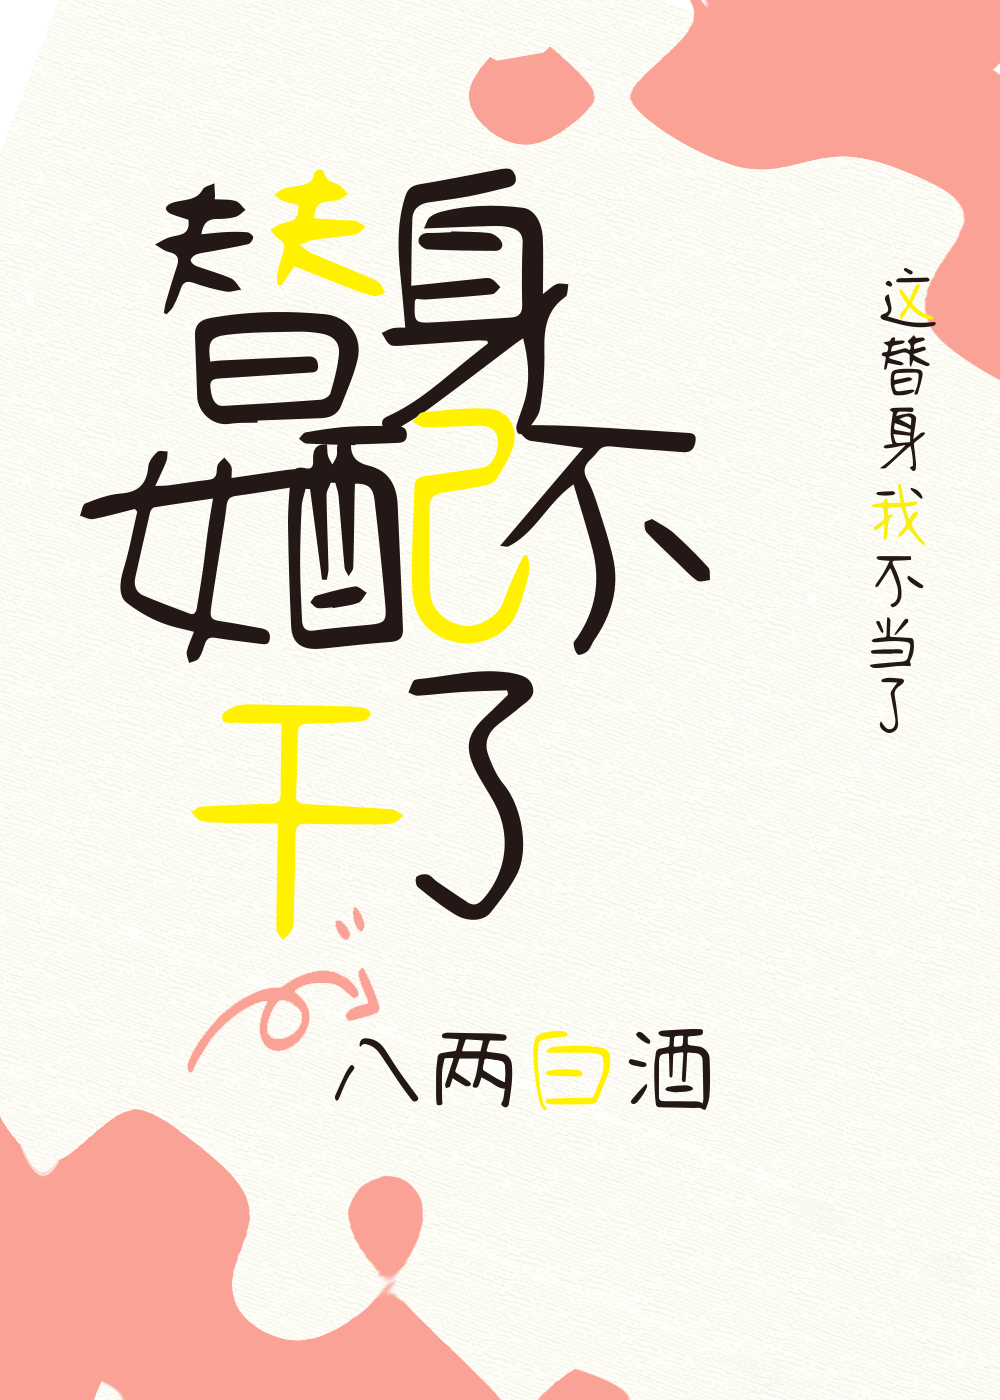 替身
女配不
干了
这替身我不当了
八两白酒